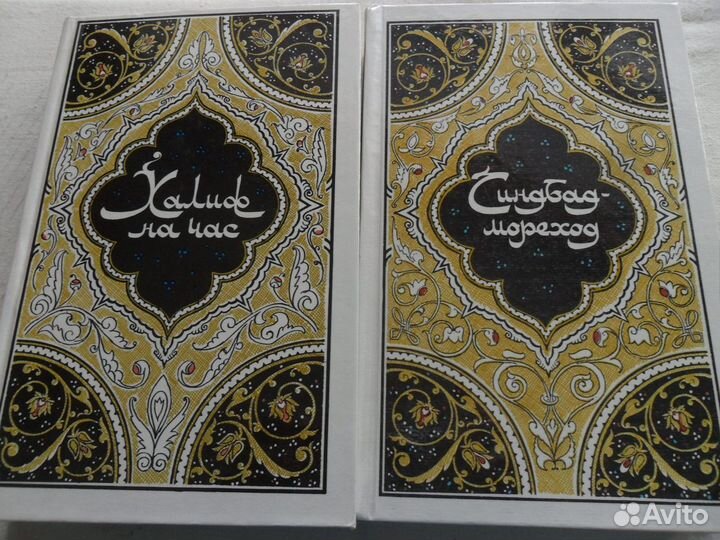 Халиф
на час
Синдбад-
мореход
Avito